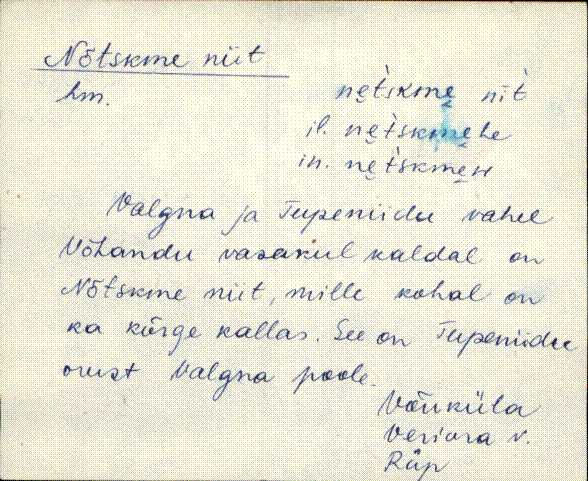 Nõtskme niit
hm.
ne̮t̀skme̮ nìt̀
il. ne̮t̀skme̮he
in. ne̮t̀skme̮н
Valgna ja Tupeniidu vahel
Võhandu vasakul kaldal on
Nõtskme niit, mille kohal on
ka kõrge kallas. See on Tupeniidu
orust Valgna poole.
Võuküla
Veriora v.
Räp